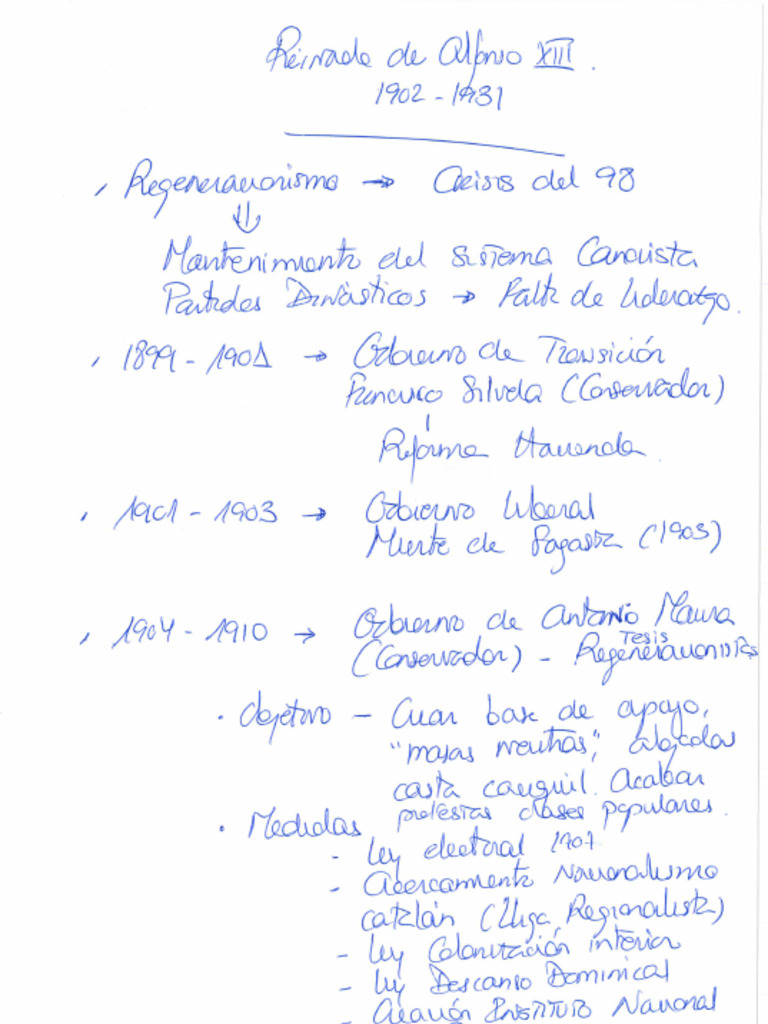 Reinado de Alfonso XIII.
1902 - 1931
, Regeneracionismo → Crisis del 98
⇓
Mantenimiento del Sistema Canovista
Partidos Dinásticos → Falta de liderazgo.
, 1899 - 1901 → Gobierno de Transición
Francisco Silvela (Conservador)
Reforma Hacienda.
, 1901 - 1903 → Gobierno liberal
Muerte de Sagasta (1903)
, 1904 - 1910 → Gobierno de Antonio Maura
(Conservador) - Tesis Regeneracionistas
· Objetivo - Crear base de apoyo,
"masas neutras", alejadas
casta caciquil. Acabar
protestas clases populares.
· Medidas
- Ley electoral 1907
- Acercamiento Nacionalismo
catalán (Lliga Regionalista)
- Ley Colonización interior
- Ley Descanso Dominical
- Creación Instituto Nacional